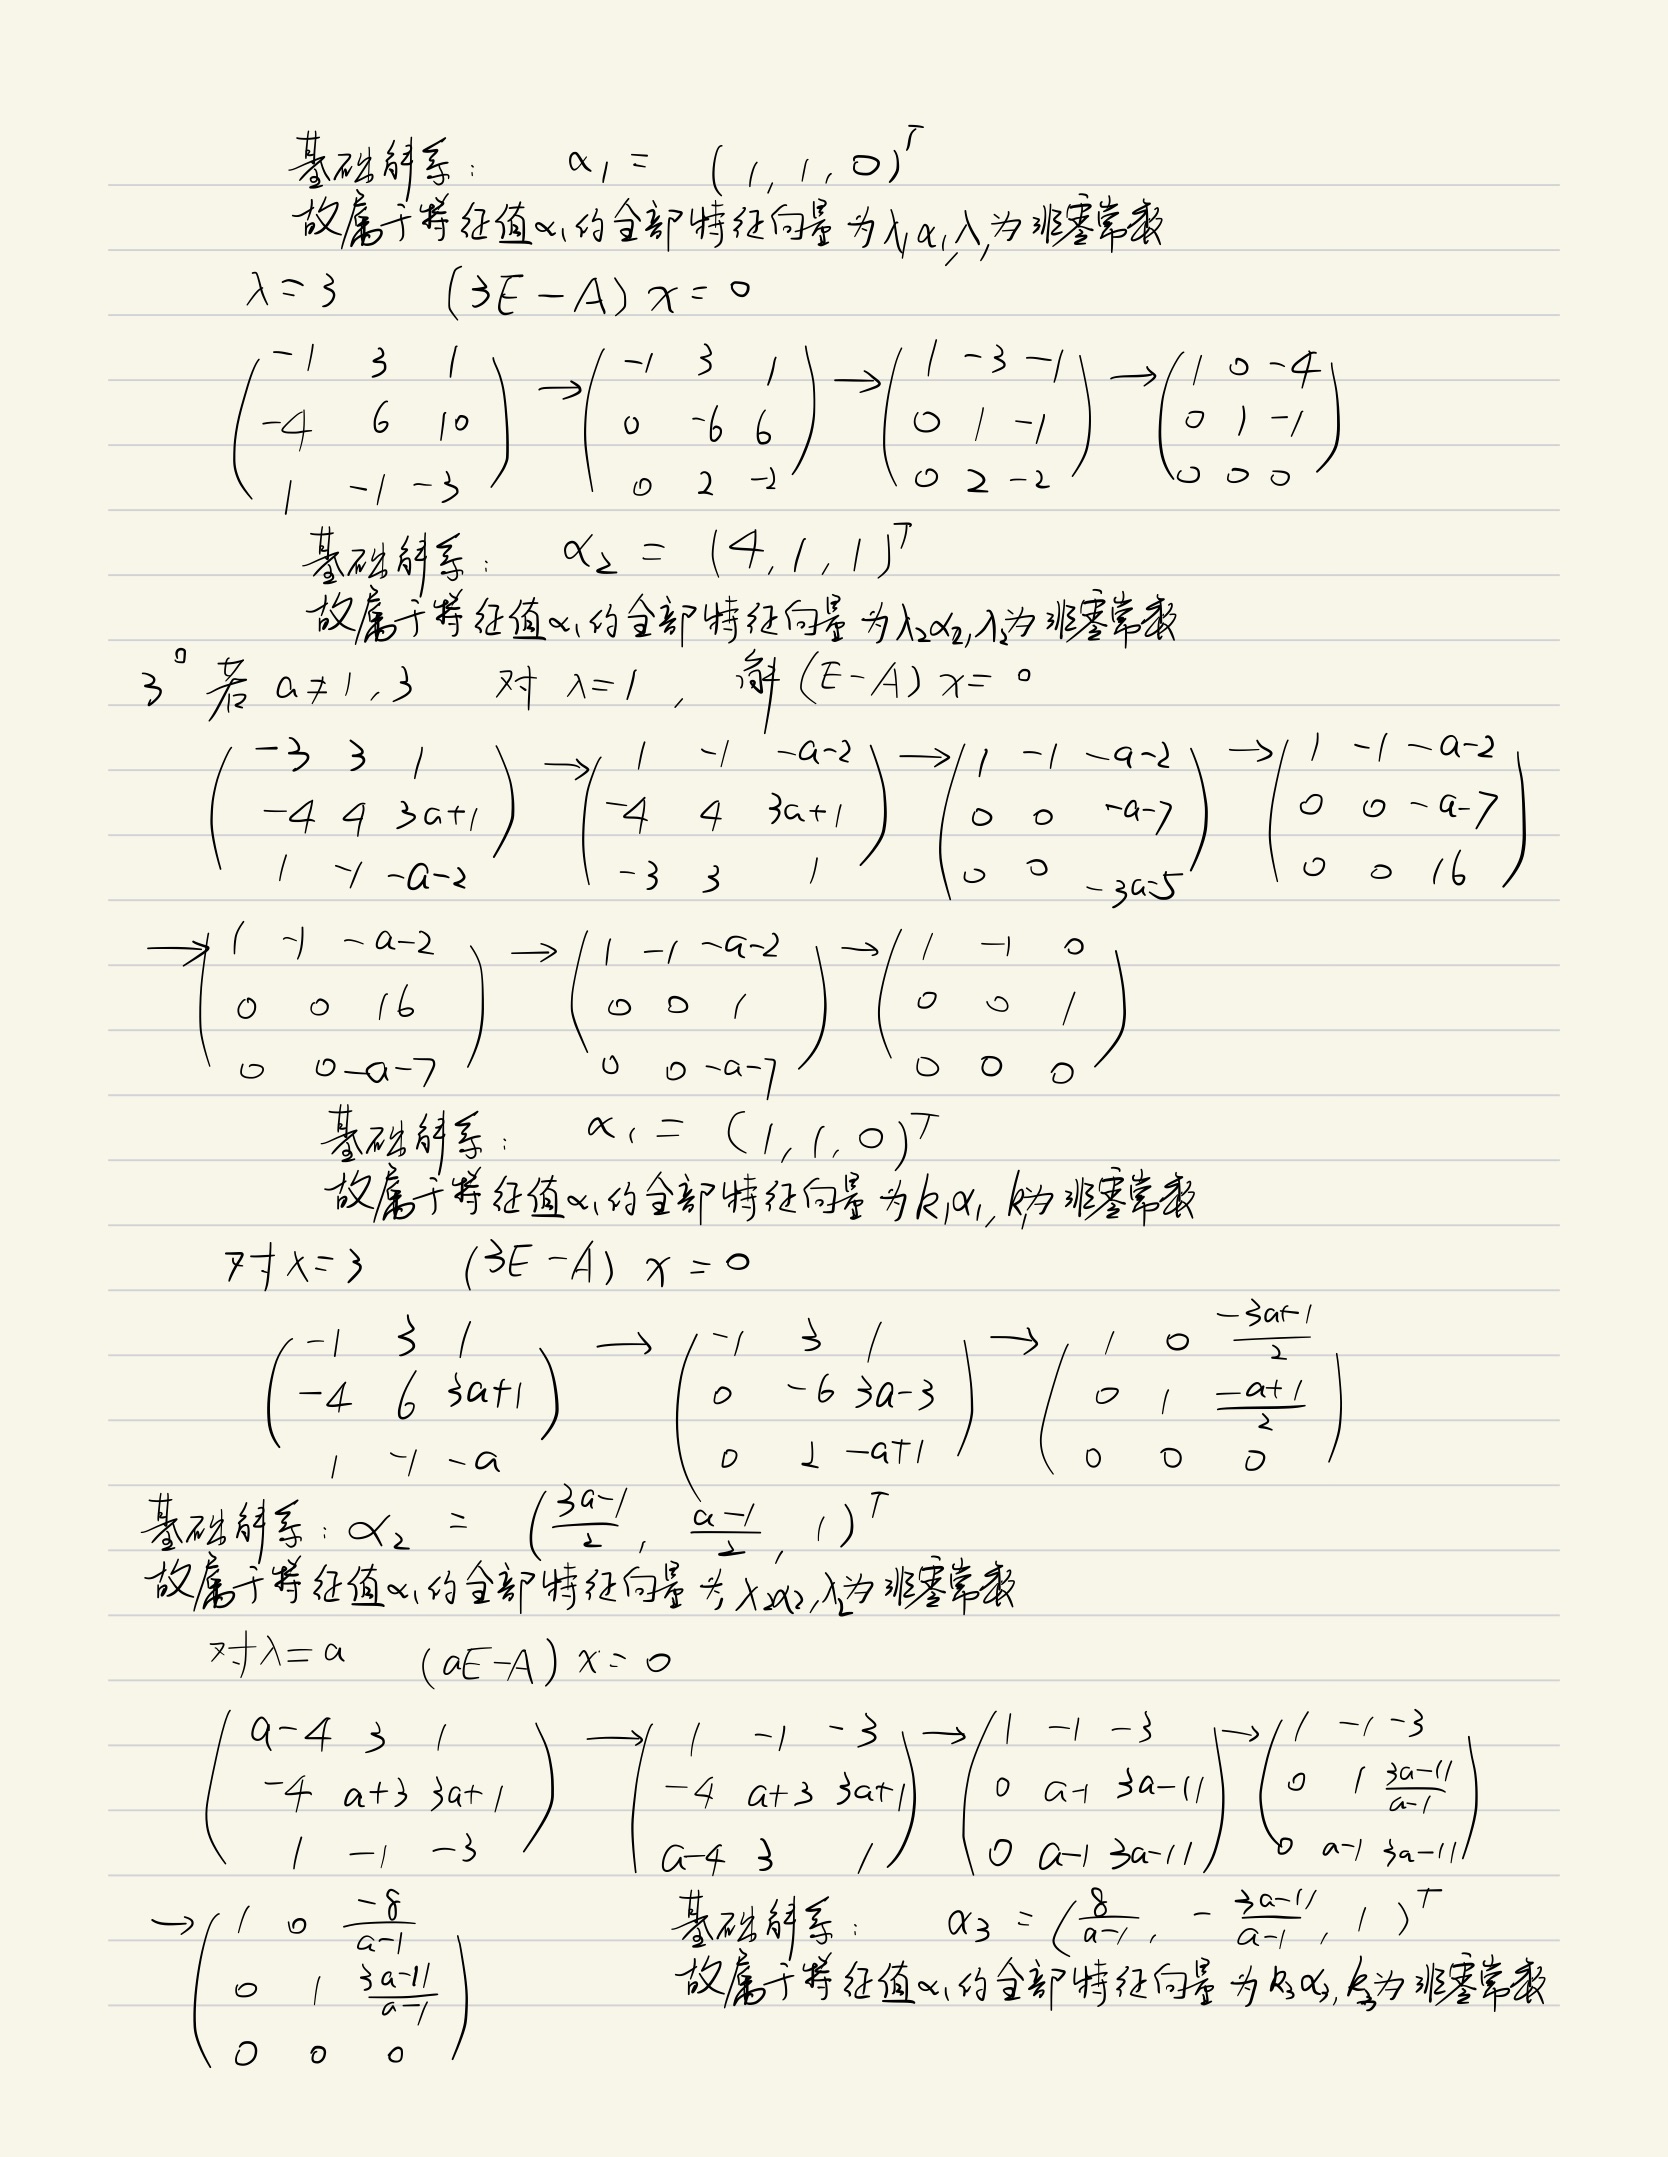 基础解系: α₁ = (1, 1, 0)ᵀ
故属于特征值α₁的全部特征向量为λ₁α₁,λ₁为非零常数
λ=3 (3E-A)x=0
(-1 3 1; -4 6 10; 1 -1 -3) → (-1 3 1; 0 -6 6; 0 2 -2) → (1 -3 -1; 0 1 -1; 0 2 -2) → (1 0 -4; 0 1 -1; 0 0 0)
基础解系: α₂ = (4, 1, 1)ᵀ
故属于特征值α₁的全部特征向量为λ₂α₂,λ₂为非零常数
3° 若 a≠1,3 对 λ=1, 解(E-A)x=0
(-3 3 1; -4 4 3a+1; 1 -1 -a-2) → (1 -1 -a-2; -4 4 3a+1; -3 3 1) → (1 -1 -a-2; 0 0 -a-7; 0 0 -3a-5) → (1 -1 -a-2; 0 0 -a-7; 0 0 16)
→ (1 -1 -a-2; 0 0 16; 0 0 -a-7) → (1 -1 -a-2; 0 0 1; 0 0 -a-7) → (1 -1 0; 0 0 1; 0 0 0)
基础解系: α₁ = (1, 1, 0)ᵀ
故属于特征值α₁的全部特征向量为k₁α₁, k₁为非零常数
对λ=3 (3E-A)x=0
(-1 3 1; -4 6 3a+1; 1 -1 -a) → (-1 3 1; 0 -6 3a-3; 0 2 -a+1) → (1 0 (-3a+1)/2; 0 1 (-a+1)/2; 0 0 0)
基础解系: α₂ = ((3a-1)/2, (a-1)/2, 1)ᵀ
故属于特征值α₁的全部特征向量为λ₂α₂,λ₂为非零常数
对λ=a (aE-A)x=0
(a-4 3 1; -4 a+3 3a+1; 1 -1 -3) → (1 -1 -3; -4 a+3 3a+1; a-4 3 1) → (1 -1 -3; 0 a-1 3a-11; 0 a-1 3a-11) → (1 -1 -3; 0 1 (3a-11)/(a-1); 0 a-1 3a-11)
→ (1 0 -8/(a-1); 0 1 (3a-11)/(a-1); 0 0 0) 基础解系: α₃ = (8/(a-1), -(3a-11)/(a-1), 1)ᵀ
故属于特征值α₁的全部特征向量为k₃α₃, k₃为非零常数